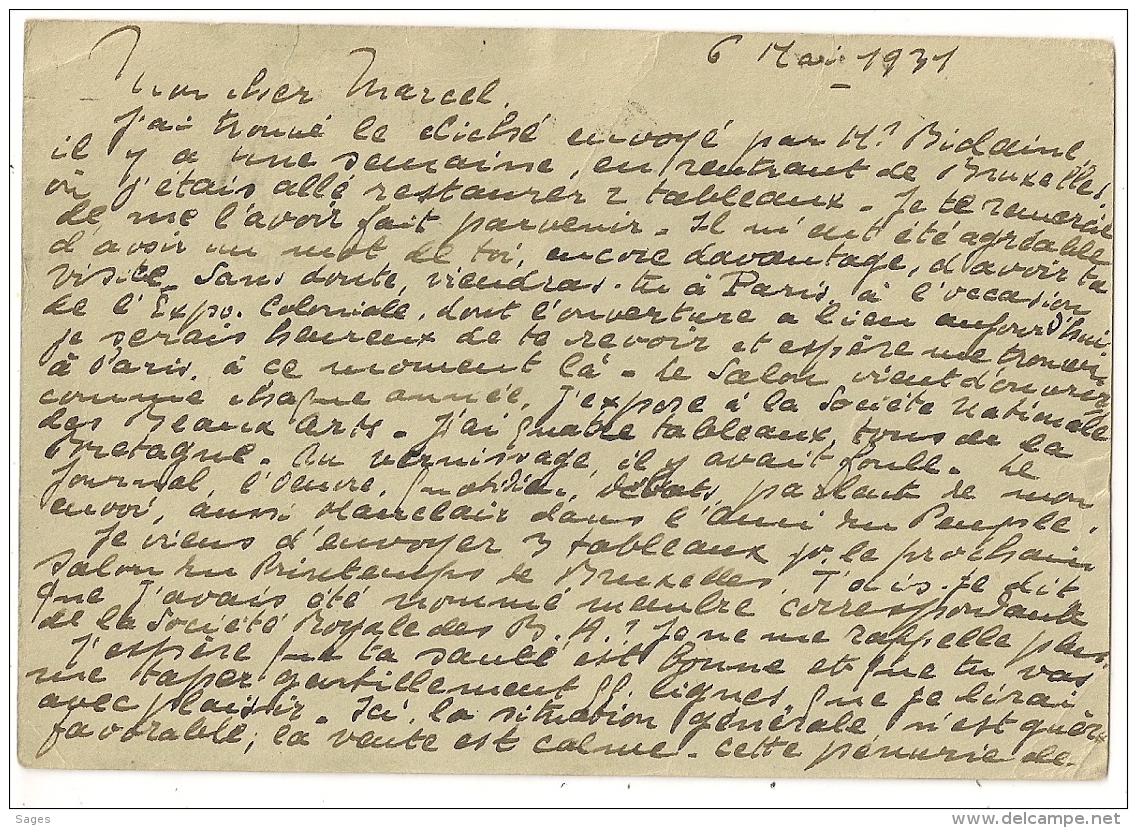 6 Mai 1931
Mon cher Marcel.
J'ai trouvé le cliché envoyé par Mr. Bidaine
il y a une semaine, en rentrant de Bruxelles,
où j'étais allé restaurer 2 tableaux. Je te remercie
de me l'avoir fait parvenir. Il m'eut été agréable
d'avoir un mot de toi, encore davantage, d'avoir ta
visite. Sans doute, viendras-tu à Paris, à l'occasion
de l'Expo. Coloniale, dont l'ouverture a lieu aujourd'hui.
je serais heureux de te revoir et espère me trouver
à Paris, à ce moment là. Le Salon vient d'ouvrir
comme chaque année. J'expose à la Société Nationale
des Beaux Arts. J'ai quatre tableaux, tous de la
Bretagne. Au vernissage, il y avait foule. Le
Journal, l'Oeuvre, Quotidien, Débats, parlent de mon
envoi, aussi Mauclair dans l'Ami du Peuple.
Je viens d'envoyer 3 tableaux pr. le prochain
Salon du Printemps de Bruxelles. T'ais-je dit
que j'avais été nommé membre correspondant
de la Société Royale des B. A.? Je ne me rappelle plus.
J'espère que ta santé est bonne et que tu vas
me taper gentillement qq. lignes que je lirai
avec plaisir. Ici, la situation générale n'est guère
favorable; la vente est calme. cette pénurie de
Sages
www.delcampe.net